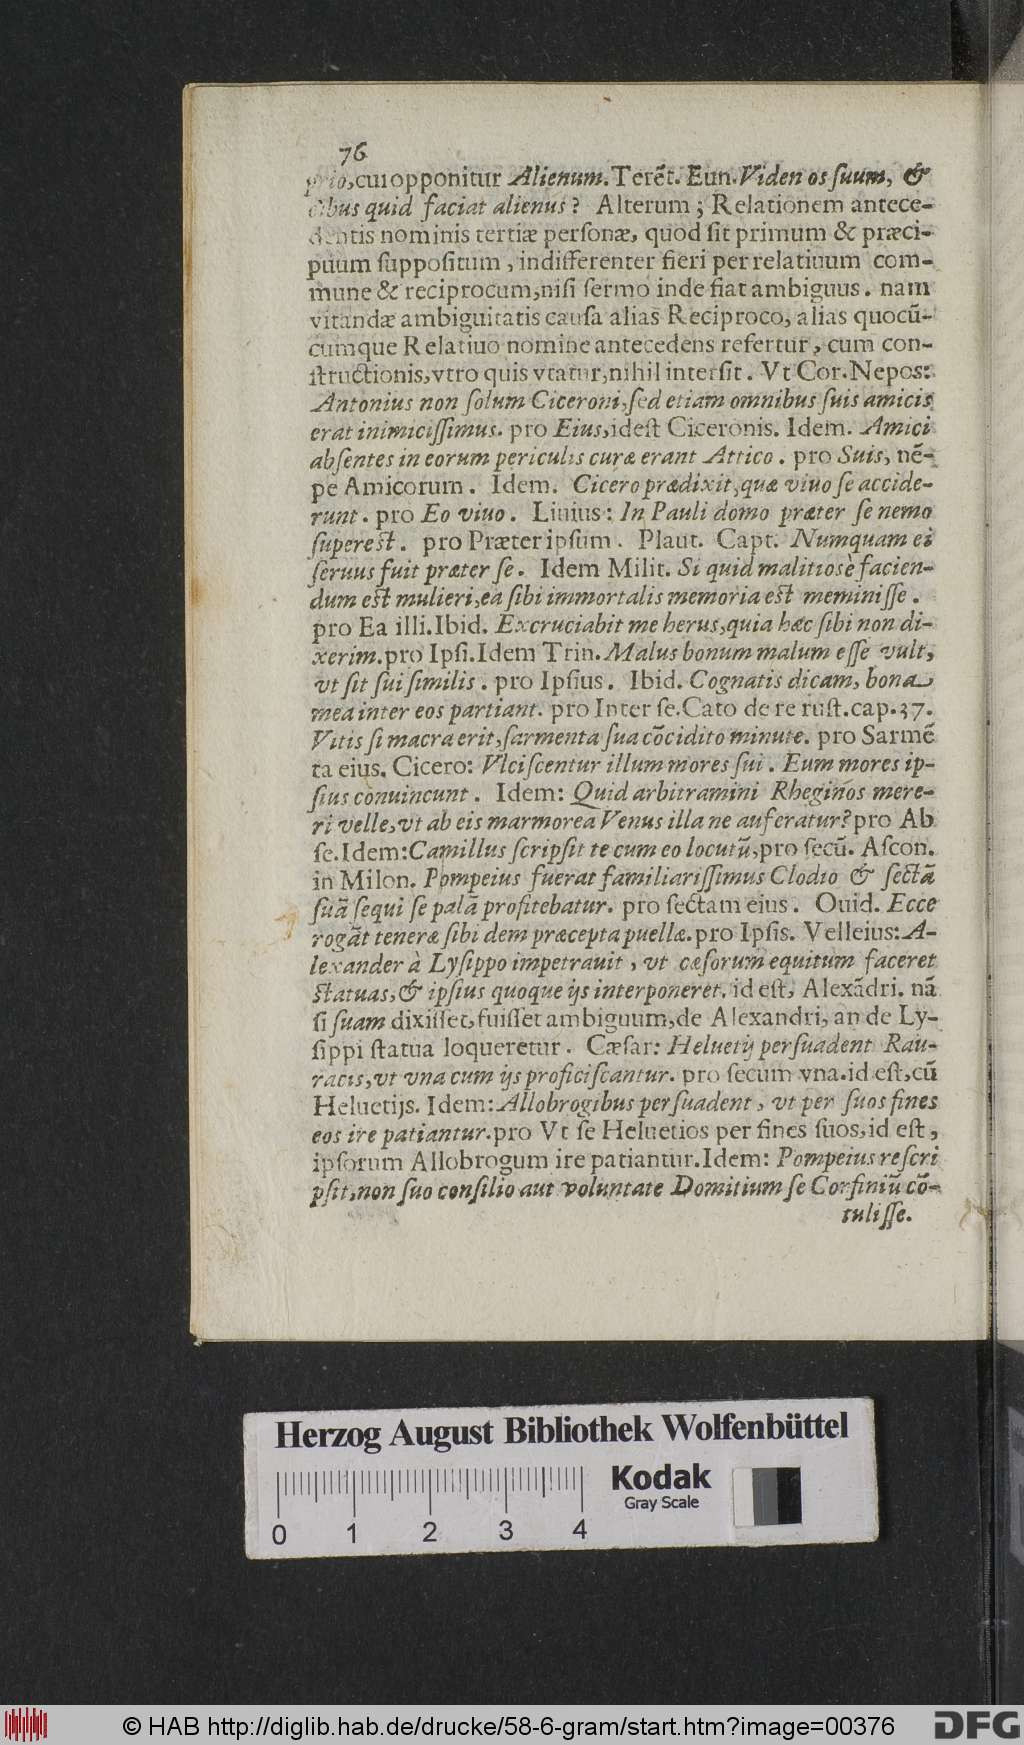 76
prio,cui opponitur Alienum. Terēt. Eun. Viden os suum, &
cibus quid faciat alienus? Alterum; Relationem antece-
dentis nominis tertiæ personæ, quod sit primum & præci-
puum suppositum, indifferenter fieri per relatiuum com-
mune & reciprocum, nisi sermo inde fiat ambiguus. nam
vitandæ ambiguitatis causa alias Reciproco, alias quocū-
cumque Relatiuo nomine antecedens refertur, cum con-
structionis, vtro quis vtatur, nihil intersit. Vt Cor. Nepos:
Antonius non solum Ciceroni, sed etiam omnibus suis amicis
erat inimicissimus. pro Eius, idest Ciceronis. Idem. Amici
absentes in eorum periculis curæ erant Attico. pro Suis, nē-
pe Amicorum. Idem. Cicero prædixit, quæ viuo se accide-
runt. pro Eo viuo. Liuius: In Pauli domo præter se nemo
superest. pro Præter ipsum. Plaut. Capt. Numquam ei
seruus fuit præter se. Idem Milit. Si quid malitiosè facien-
dum est mulieri, ea sibi immortalis memoria est meminisse.
pro Ea illi. Ibid. Excruciabit me herus, quia hæc sibi non di-
xerim. pro Ipsi. Idem Trin. Malus bonum malum esse vult,
vt sit sui similis. pro Ipsius. Ibid. Cognatis dicam, bona
mea inter eos partiant. pro Inter se. Cato de re rust. cap. 37.
Vitis si macra erit, sarmenta sua cōcidito minute. pro Sarmē
ta eius. Cicero: Vlciscentur illum mores sui. Eum mores ip-
sius conuincunt. Idem: Quid arbitramini Rheginos mere-
ri velle, vt ab eis marmorea Venus illa ne auferatur? pro Ab
se. Idem: Camillus scripsit te cum eo locutū, pro secū. Ascon.
in Milon. Pompeius fuerat familiarissimus Clodio & sectā
suā sequi se palā profitebatur. pro sectam eius. Ouid. Ecce
rogāt teneræ sibi dem præcepta puellæ. pro Ipsis. Velleius: A-
lexander à Lysippo impetrauit, vt cæsorum equitum faceret
statuas, & ipsius quoque ijs interponeret. id est, Alexādri. nā
si suam dixisset, fuisset ambiguum, de Alexandri, an de Ly-
sippi statua loqueretur. Cæsar: Heluetij persuadent Rau-
racis, vt vna cum ijs proficiscantur. pro secum vna. id est, cū
Heluetijs. Idem: Allobrogibus persuadent, vt per suos fines
eos ire patiantur. pro Vt se Heluetios per fines suos, id est,
ipsorum Allobrogum ire patiantur. Idem: Pompeius rescri
psit, non suo consilio aut voluntate Domitium se Corfiniū cō-
tulisse.
Herzog August Bibliothek Wolfenbüttel
Kodak
Gray Scale
0 1 2 3 4
© HAB http://diglib.hab.de/drucke/58-6-gram/start.htm?image=00376
DFG